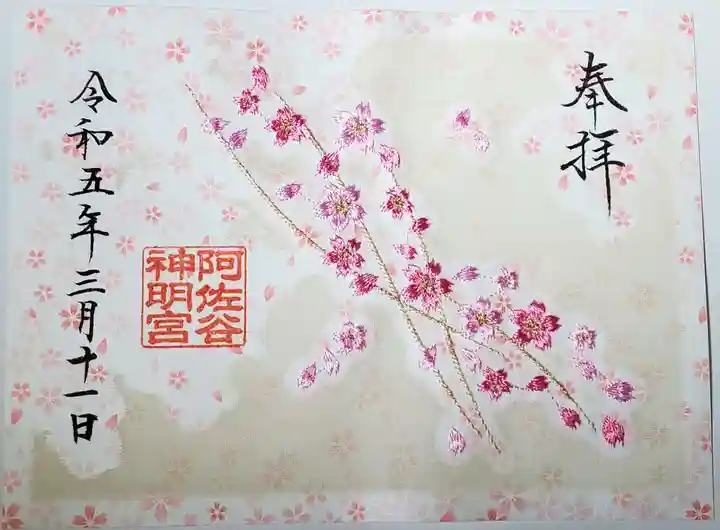 奉拝
阿佐谷
神明宮
令和五年三月十一日